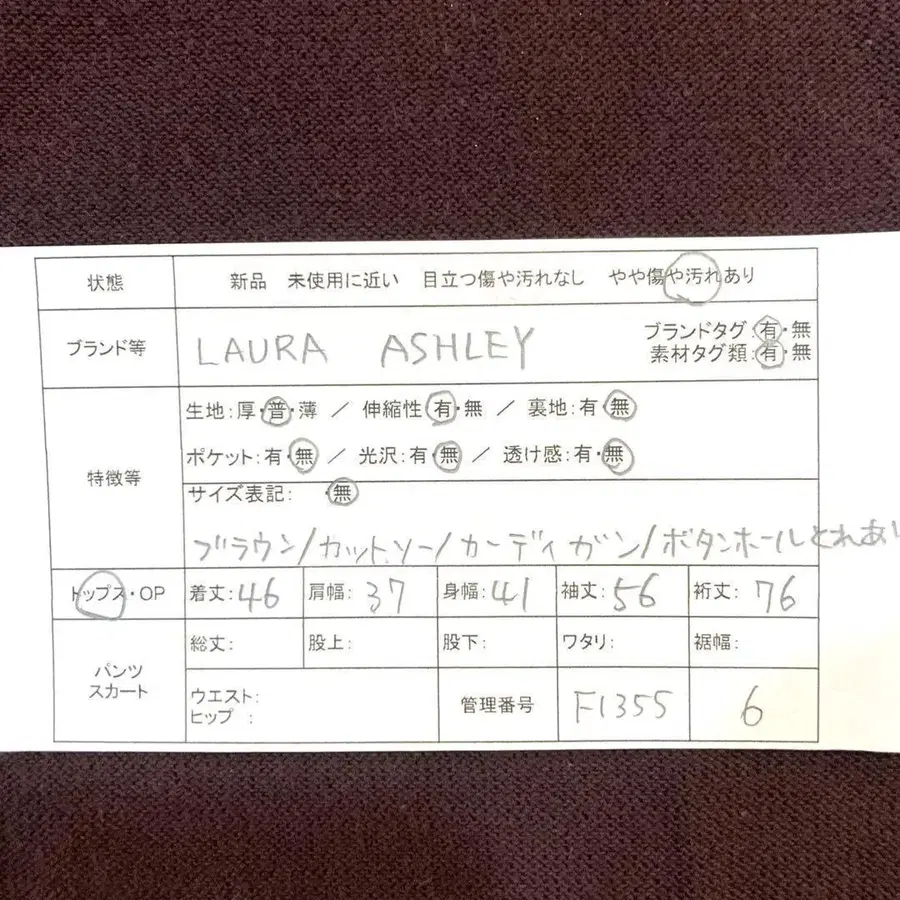 状態 新品 未使用に近い 目立つ傷や汚れなし やや傷や汚れあり
ブランド等 LAURA ASHLEY ブランドタグ:有・無
素材タグ類:有・無
特徴等 生地:厚・普・薄 / 伸縮性 有・無 / 裏地:有・無
ポケット:有・無 / 光沢:有・無 / 透け感:有・無
サイズ表記: ・無
ブラウン/カットソー/カーディガン/ボタンホールとれあり
トップス・OP 着丈:46 肩幅:37 身幅:41 袖丈:56 裄丈:76
パンツ スカート 総丈: 股上: 股下: ワタリ: 裾幅:
ウエスト:
ヒップ : 管理番号 F1355 6